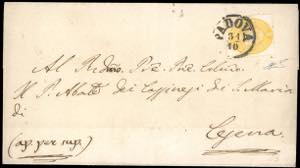 PADOVA
31
10
Al Rdmo. Pre. Pne. Colmo.
Il P. Abate dei Cassinesi di S. Maria
di
(ap. per sup.)
Cesena